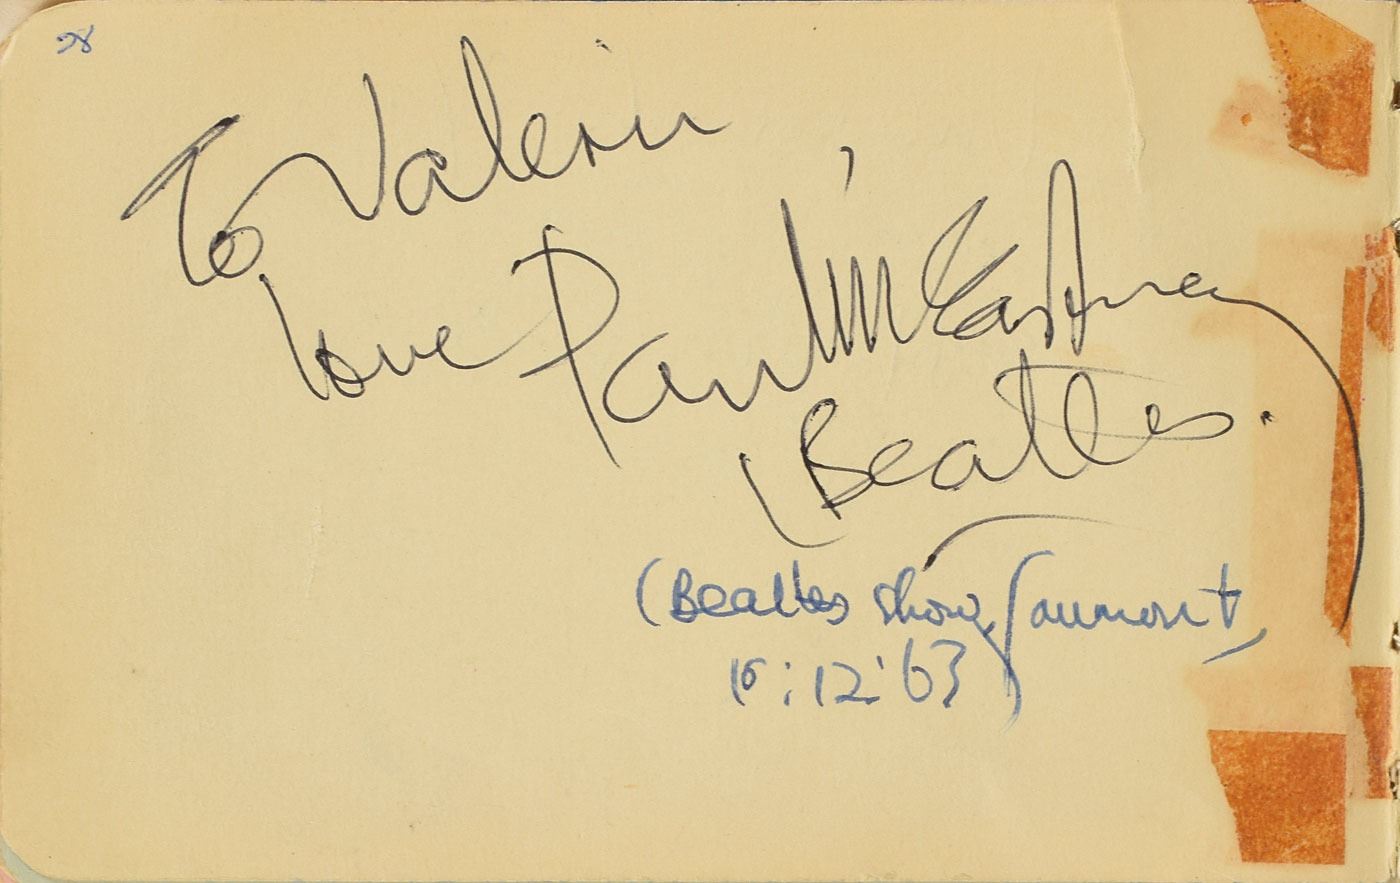 28
To Valerie
love Paul McCartney
(Beatles.
(Beatles show, Gaumont,
:12:63)